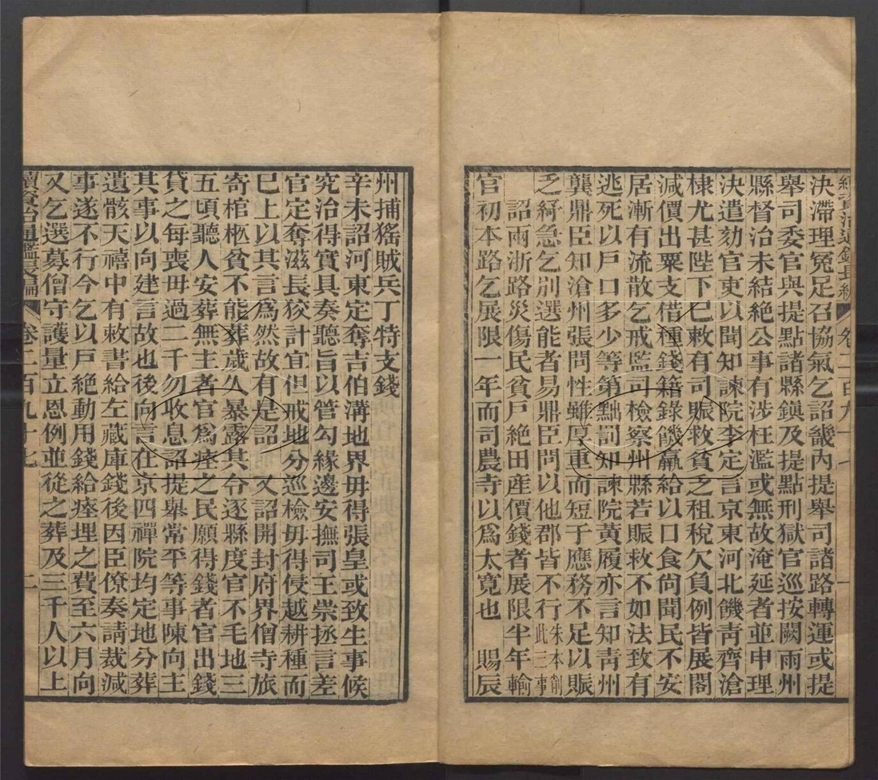 續資治通鑑長編 卷二百九十七 一
決滯理冤足召協氣乞詔畿內提舉司諸路轉運或提
舉司委官與提點諸縣鎭及提點刑獄官巡按闕雨州
縣督治未結絶公事有涉枉濫或無故淹延者並申理
決遣劾官吏以聞知諫院李定言京東河北饑靑齊滄
棣尤甚陛下巳敕有司賑救貧乏租稅欠負例皆展閣
減價出粟支借種錢籍錄饑羸給以口食尙聞民不安
居漸有流散乞戒監司檢察州縣若賑救不如法致有
逃死以戸口多少等第黜罰知諫院黃履亦言知靑州
龔鼎臣知滄州張問性雖厚重而短于應務不足以賑
乏紓急乞別選能者易鼎臣問以他郡皆不行朱本削此三事
詔兩浙路災傷民貧戸絶田産價錢者展限半年輸
官初本路乞展限一年而司農寺以爲太寛也 賜辰
州捕猺賊兵丁特支錢
辛未詔河東定奪吉伯溝地界毋得張皇或致生事候
究治得實具奏聽旨以管勾緣邊安撫司王崇拯言差
官定奪滋長狡計宜但戒地分巡檢毋得侵越耕種而
巳上以其言爲然故有是詔 又詔開封府界僧寺旅
寄棺柩貧不能葬歲久暴露其令逐縣度官不毛地三
五頃聽人安葬無主者官爲瘞之民願得錢者官出錢
貸之每喪毋過二千勿收息詔提舉常平等事陳向主
其事以向建言故也後向言在京四禪院均定地分葬
遺骸天禧中有敕書給左藏庫錢後因臣僚奏請裁減
事遂不行今乞以戸絶動用錢給瘞埋之費至六月向
又乞選募僧守護量立恩例並從之葬及三千人以上
續資治通鑑長編 卷二百九十七 二